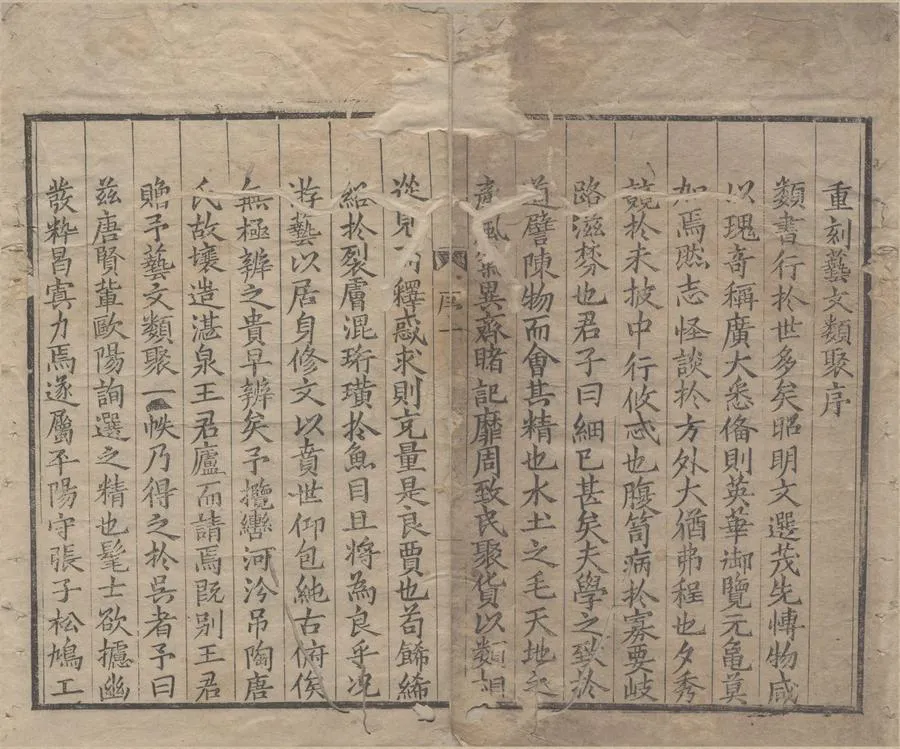 重刻藝文類聚序
類書行於世多矣昭明文選茂先慱物咸
以瑰竒稱廣大悉俻則英華御覽元龜莫
加焉然志怪談於方外大猶弗程也夕秀
競於未披中行攸忒也腹笥病於寡要岐
路滋棼也君子曰細已甚矣夫學之致於
道譬陳物而會其精也水土之毛天地之
産風氣異齊睹記靡周致民聚貨以類相
從見而釋惑求則充量是良賈也苟餙絺
紹於裂膚混珩璜於魚目且將為良乎况
游藝以居身修文以賁世仰包純古俯俟
無極辨之貴早辨矣予攬轡河汾吊陶唐
氏故壤造湛泉王君廬而請焉旣别王君
贈予藝文類聚一帙乃得之於吳者予曰
兹唐賢軰歐陽詢選之精也髦士欲攄幽
發粋昌㝛力焉遂屬平陽守張子松鳩工
序
一